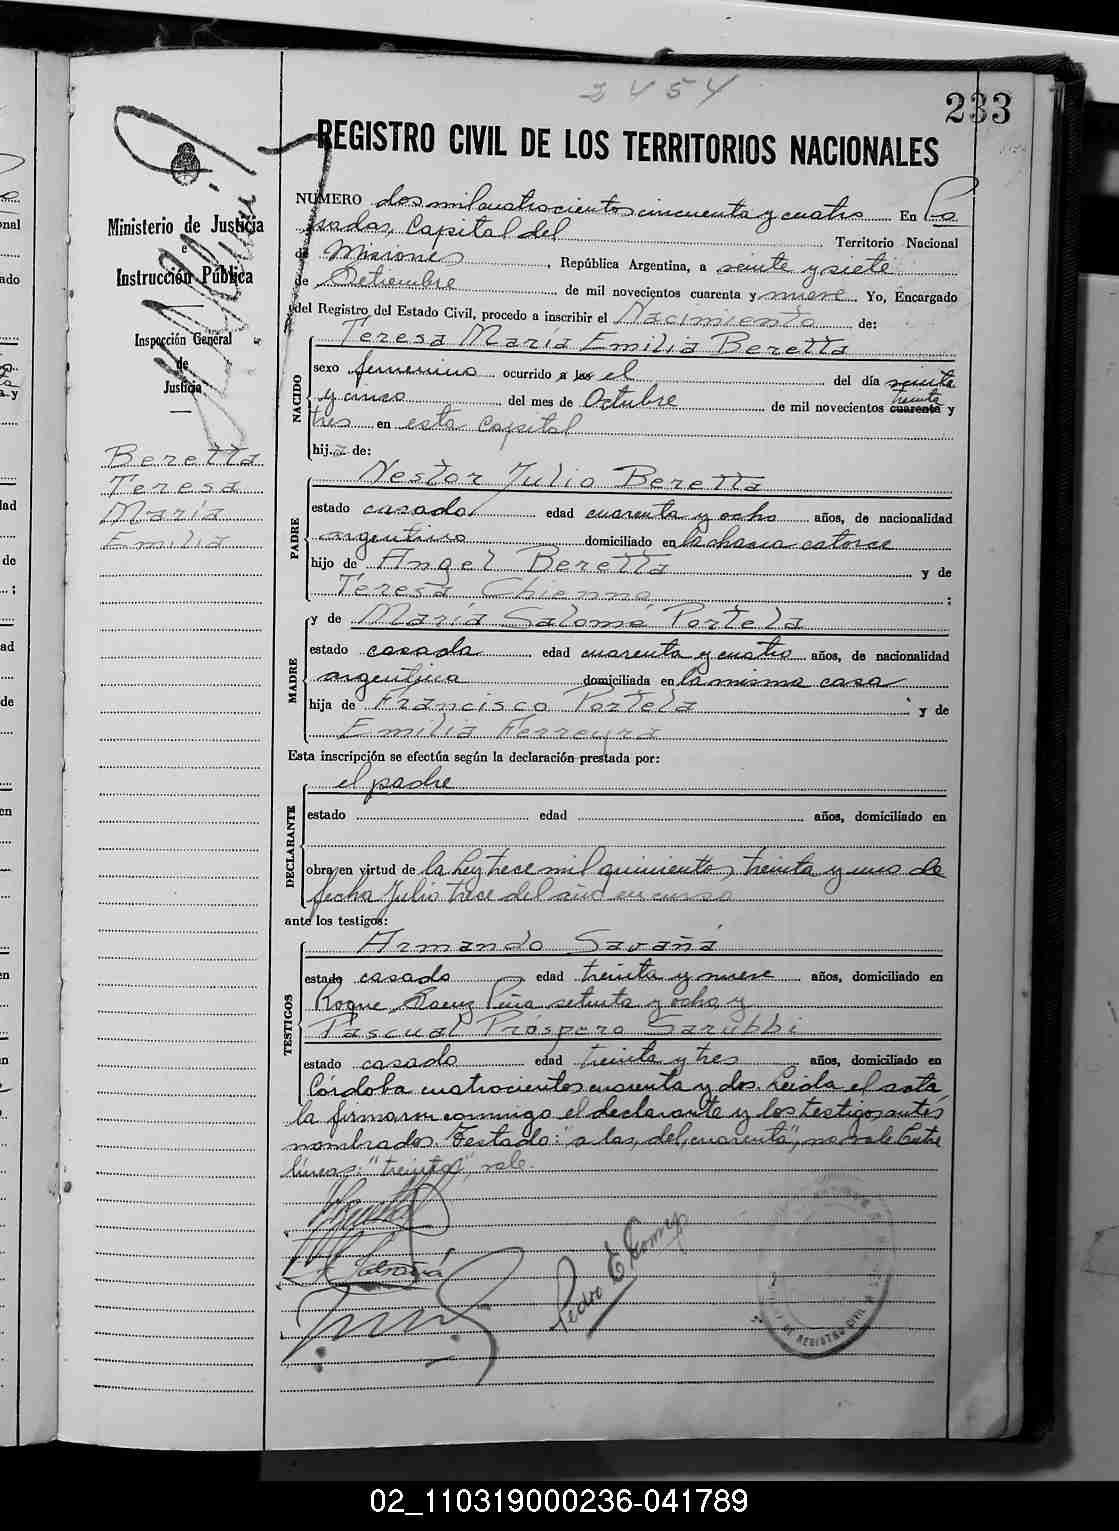 2454
233
REGISTRO CIVIL DE LOS TERRITORIOS NACIONALES
Ministerio de Justicia
e
Instrucción Pública
Inspección General
de
Justicia
Beretta
Teresa
María
Emilia
NUMERO dos mil cuatrocientos cincuenta y cuatro En Po
sadas, Capital del Territorio Nacional
de Misiones, República Argentina, a veinte y siete
de Setiembre de mil novecientos cuarenta y nueve. Yo, Encargado
del Registro del Estado Civil, procedo a inscribir el Nacimiento de:
NACIDO
Teresa María Emilia Beretta
sexo femenino ocurrido a las el del día veinte
y cinco del mes de Octubre de mil novecientos cuarenta treinta y
tres en esta Capital
hija de:
PADRE
Nestor Julio Beretta
estado casado edad cuarenta y ocho años, de nacionalidad
argentino domiciliado en la chacra catorce
hijo de Angel Beretta y de
Teresa Chienno;
MADRE
y de María Salomé Portela
estado casada edad cuarenta y cuatro años, de nacionalidad
argentina domiciliada en la misma casa
hija de Francisco Portela y de
Emilia Ferreyra
Esta inscripción se efectúa según la declaración prestada por:
DECLARANTE
el padre
estado edad años, domiciliado en
obra en virtud de la Ley trece mil quinientos treinta y uno de
fecha Julio trece del año en curso
ante los testigos:
TESTIGOS
Armando Savañá
estado casado edad treinta y nueve años, domiciliado en
Roque Saenz Peña setenta y ocho, y
Pascual Próspero Sarubbi
estado casado edad treinta y tres años, domiciliado en
Córdoba cuatrocientos cuarenta y dos. Leida el acta
la firmaron conmigo el declarante y los testigos antes
nombrados. Testado: "a las, del, cuarenta", no vale. Entre
líneas: "treinta", vale.
Pedro E Gomez
DE REGISTRO CIVIL
02_110319000236-041789